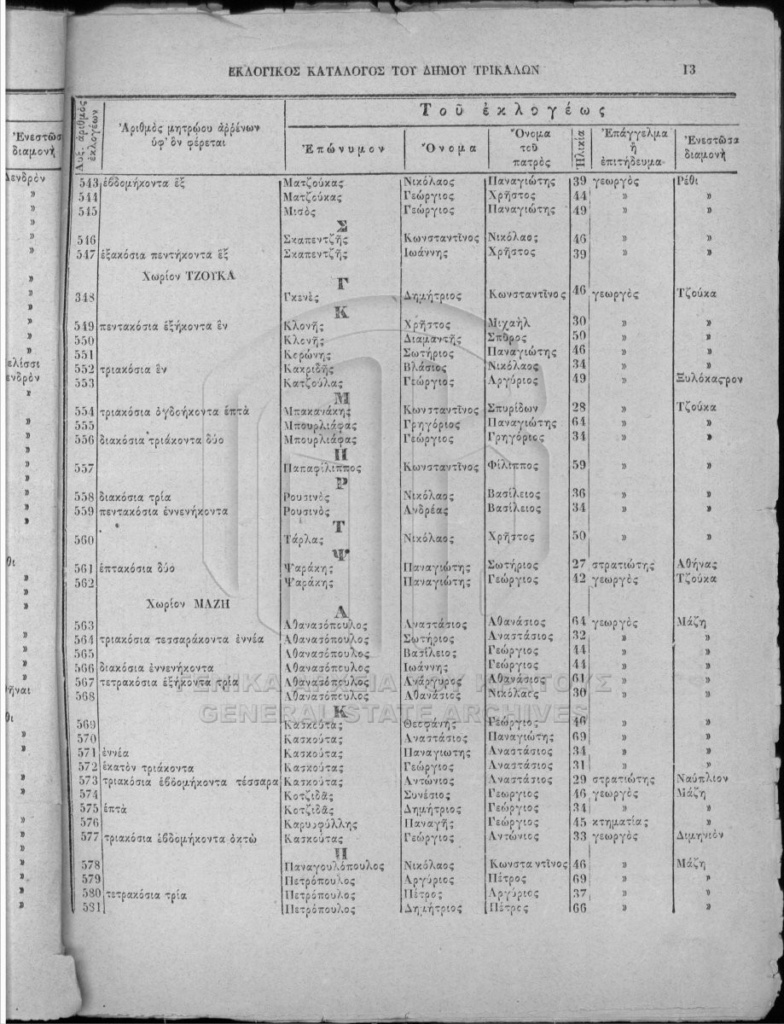 ΕΚΛΟΓΙΚΟΣ ΚΑΤΑΛΟΓΟΣ ΤΟΥ ΔΗΜΟΥ ΤΡΙΚΑΛΩΝ 13
Αὐξ. ἀριθμὸς ἐκλογέων
Ἀριθμὸς μητρῴου ἀρρένων ὑφ' ὃν φέρεται
Τοῦ ἐκλογέως
Ἐπώνυμον Ὄνομα Ὄνομα τοῦ πατρὸς Ἡλικία Ἐπάγγελμα ἢ ἐπιτήδευμα Ἐνεστῶσα διαμονὴ
543 ἑβδομήκοντα ἓξ Ματζούκας Νικόλαος Παναγιώτης 39 γεωργὸς Ρέθι
544 Ματζούκας Γεώργιος Χρῆστος 44 » »
545 Μισὸς Γεώργιος Παναγιώτης 49 » »
Σ
546 Σκαπεντζῆς Κωνσταντῖνος Νικόλαος 46 » »
547 ἑξακόσια πεντήκοντα ἓξ Σκαπεντζῆς Ἰωάννης Χρῆστος 39 » »
Χωρίον ΤΖΟΥΚΑ
Γ
348 Γκενὲς Δημήτριος Κωνσταντῖνος 46 γεωργὸς Τζούκα
Κ
549 πεντακόσια ἑξήκοντα ἓν Κλονῆς Χρῆστος Μιχαὴλ 30 » »
550 Κλονῆς Διαμαντῆς Σπῦρος 50 » »
551 Κερώνης Σωτήριος Παναγιώτης 46 » »
552 τριακόσια ἓν Κακριδῆς Βλάσιος Νικόλαος 34 » »
553 Κατζούλας Γεώργιος Ἀργύριος 49 » Ξυλόκαστρον
Μ
554 τριακόσια ὀγδοήκοντα ἑπτὰ Μπακανάκης Κωνσταντῖνος Σπυρίδων 28 » Τζούκα
555 Μπουρλιάφας Γρηγόριος Παναγιώτης 64 » »
556 διακόσια τριάκοντα δύο Μπουρλιάφας Γεώργιος Γρηγόριος 34 » »
Π
557 Παπαφίλιππος Κωνσταντῖνος Φίλιππος 59 » »
Ρ
558 διακόσια τρία Ρουσινὸς Νικόλαος Βασίλειος 36 » »
559 πεντακόσια ἐννενήκοντα Ρουσινὸς Ἀνδρέας Βασίλειος 34 » »
Τ
560 Τάρλας Νικόλαος Χρῆστος 50 » »
Ψ
561 ἑπτακόσια δύο Ψαράκης Παναγιώτης Σωτήριος 27 στρατιώτης Ἀθήνας
562 Ψαράκης Παναγιώτης Γεώργιος 42 γεωργὸς Τζούκα
Χωρίον ΜΑΖΗ
Α
563 Ἀθανασόπουλος Ἀναστάσιος Ἀθανάσιος 64 γεωργὸς Μάζη
564 τριακόσια τεσσαράκοντα ἐννέα Ἀθανασόπουλος Σωτήριος Ἀναστάσιος 32 » »
565 Ἀθανασόπουλος Βασίλειος Γεώργιος 44 » »
566 διακόσια ἐννενήκοντα Ἀθανασόπουλος Ἰωάννης Γεώργιος 44 » »
567 τετρακόσια ἑξήκοντα τρία Ἀθανασόπουλος Ἀνάργυρος Ἀθανάσιος 61 » »
568 Ἀθανασόπουλος Ἀθανάσιος Νικόλαος 30 » »
Κ
569 Κασκούτας Θεοφάνης Γεώργιος 46 » »
570 Κασκούτας Ἀναστάσιος Παναγιώτης 69 » »
571 ἐννέα Κασκούτας Παναγιώτης Ἀναστάσιος 34 » »
572 ἑκατὸν τριάκοντα Κασκούτας Γεώργιος Ἀναστάσιος 31 » »
573 τριακόσια ἑβδομήκοντα τέσσαρα Κασκούτας Ἀντώνιος Ἀναστάσιος 29 στρατιώτης Ναύπλιον
574 Κοτζιδᾶς Συνέσιος Γεώργιος 46 γεωργὸς Μάζη
575 ἑπτὰ Κοτζιδᾶς Δημήτριος Γεώργιος 34 » »
576 Καρυοφύλλης Παναγῆς Γεώργιος 45 κτηματίας »
577 τριακόσια ἑβδομήκοντα ὀκτὼ Κασκούτας Γεώργιος Ἀντώνιος 33 γεωργὸς Διμηνιὸν
Π
578 Παναγουλόπουλος Νικόλαος Κωνσταντῖνος 46 » Μάζη
579 Πετρόπουλος Ἀργύριος Πέτρος 69 » »
580 τετρακόσια τρία Πετρόπουλος Πέτρος Ἀργύριος 37 » »
581 Πετρόπουλος Δημήτριος Πέτρος 66 » »
ΓΕΝΙΚΑ ΑΡΧΕΙΑ ΤΟΥ ΚΡΑΤΟΥΣ
GENERAL STATE ARCHIVES